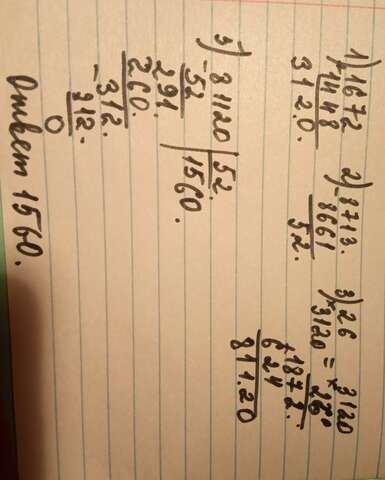 1) 1672
1448
3120.
2) -8713.
8661
52.
3) 26
*3120 = *3120
26
+1872.
624
811.20
3) 81120 | 52.
-52 1560.
291
260.
-312.
312.
0
Ответ 1560.